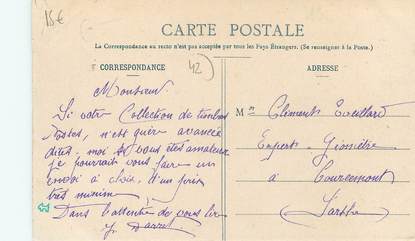 15€
CARTE POSTALE
La Correspondance au recto n'est pas acceptée par tous les Pays Étrangers. (Se renseigner à la Poste.)
CORRESPONDANCE
42
ADRESSE
Monsieur
Si votre Collection de timbres
postes, n'est guère avancée
dites-moi si vous êtes amateur
je pourrait vous faire un
envoi à choix. Et un prix
très minime
Dans l'attente de vous lire
M
Expert-Géomètre
à
Sarthe